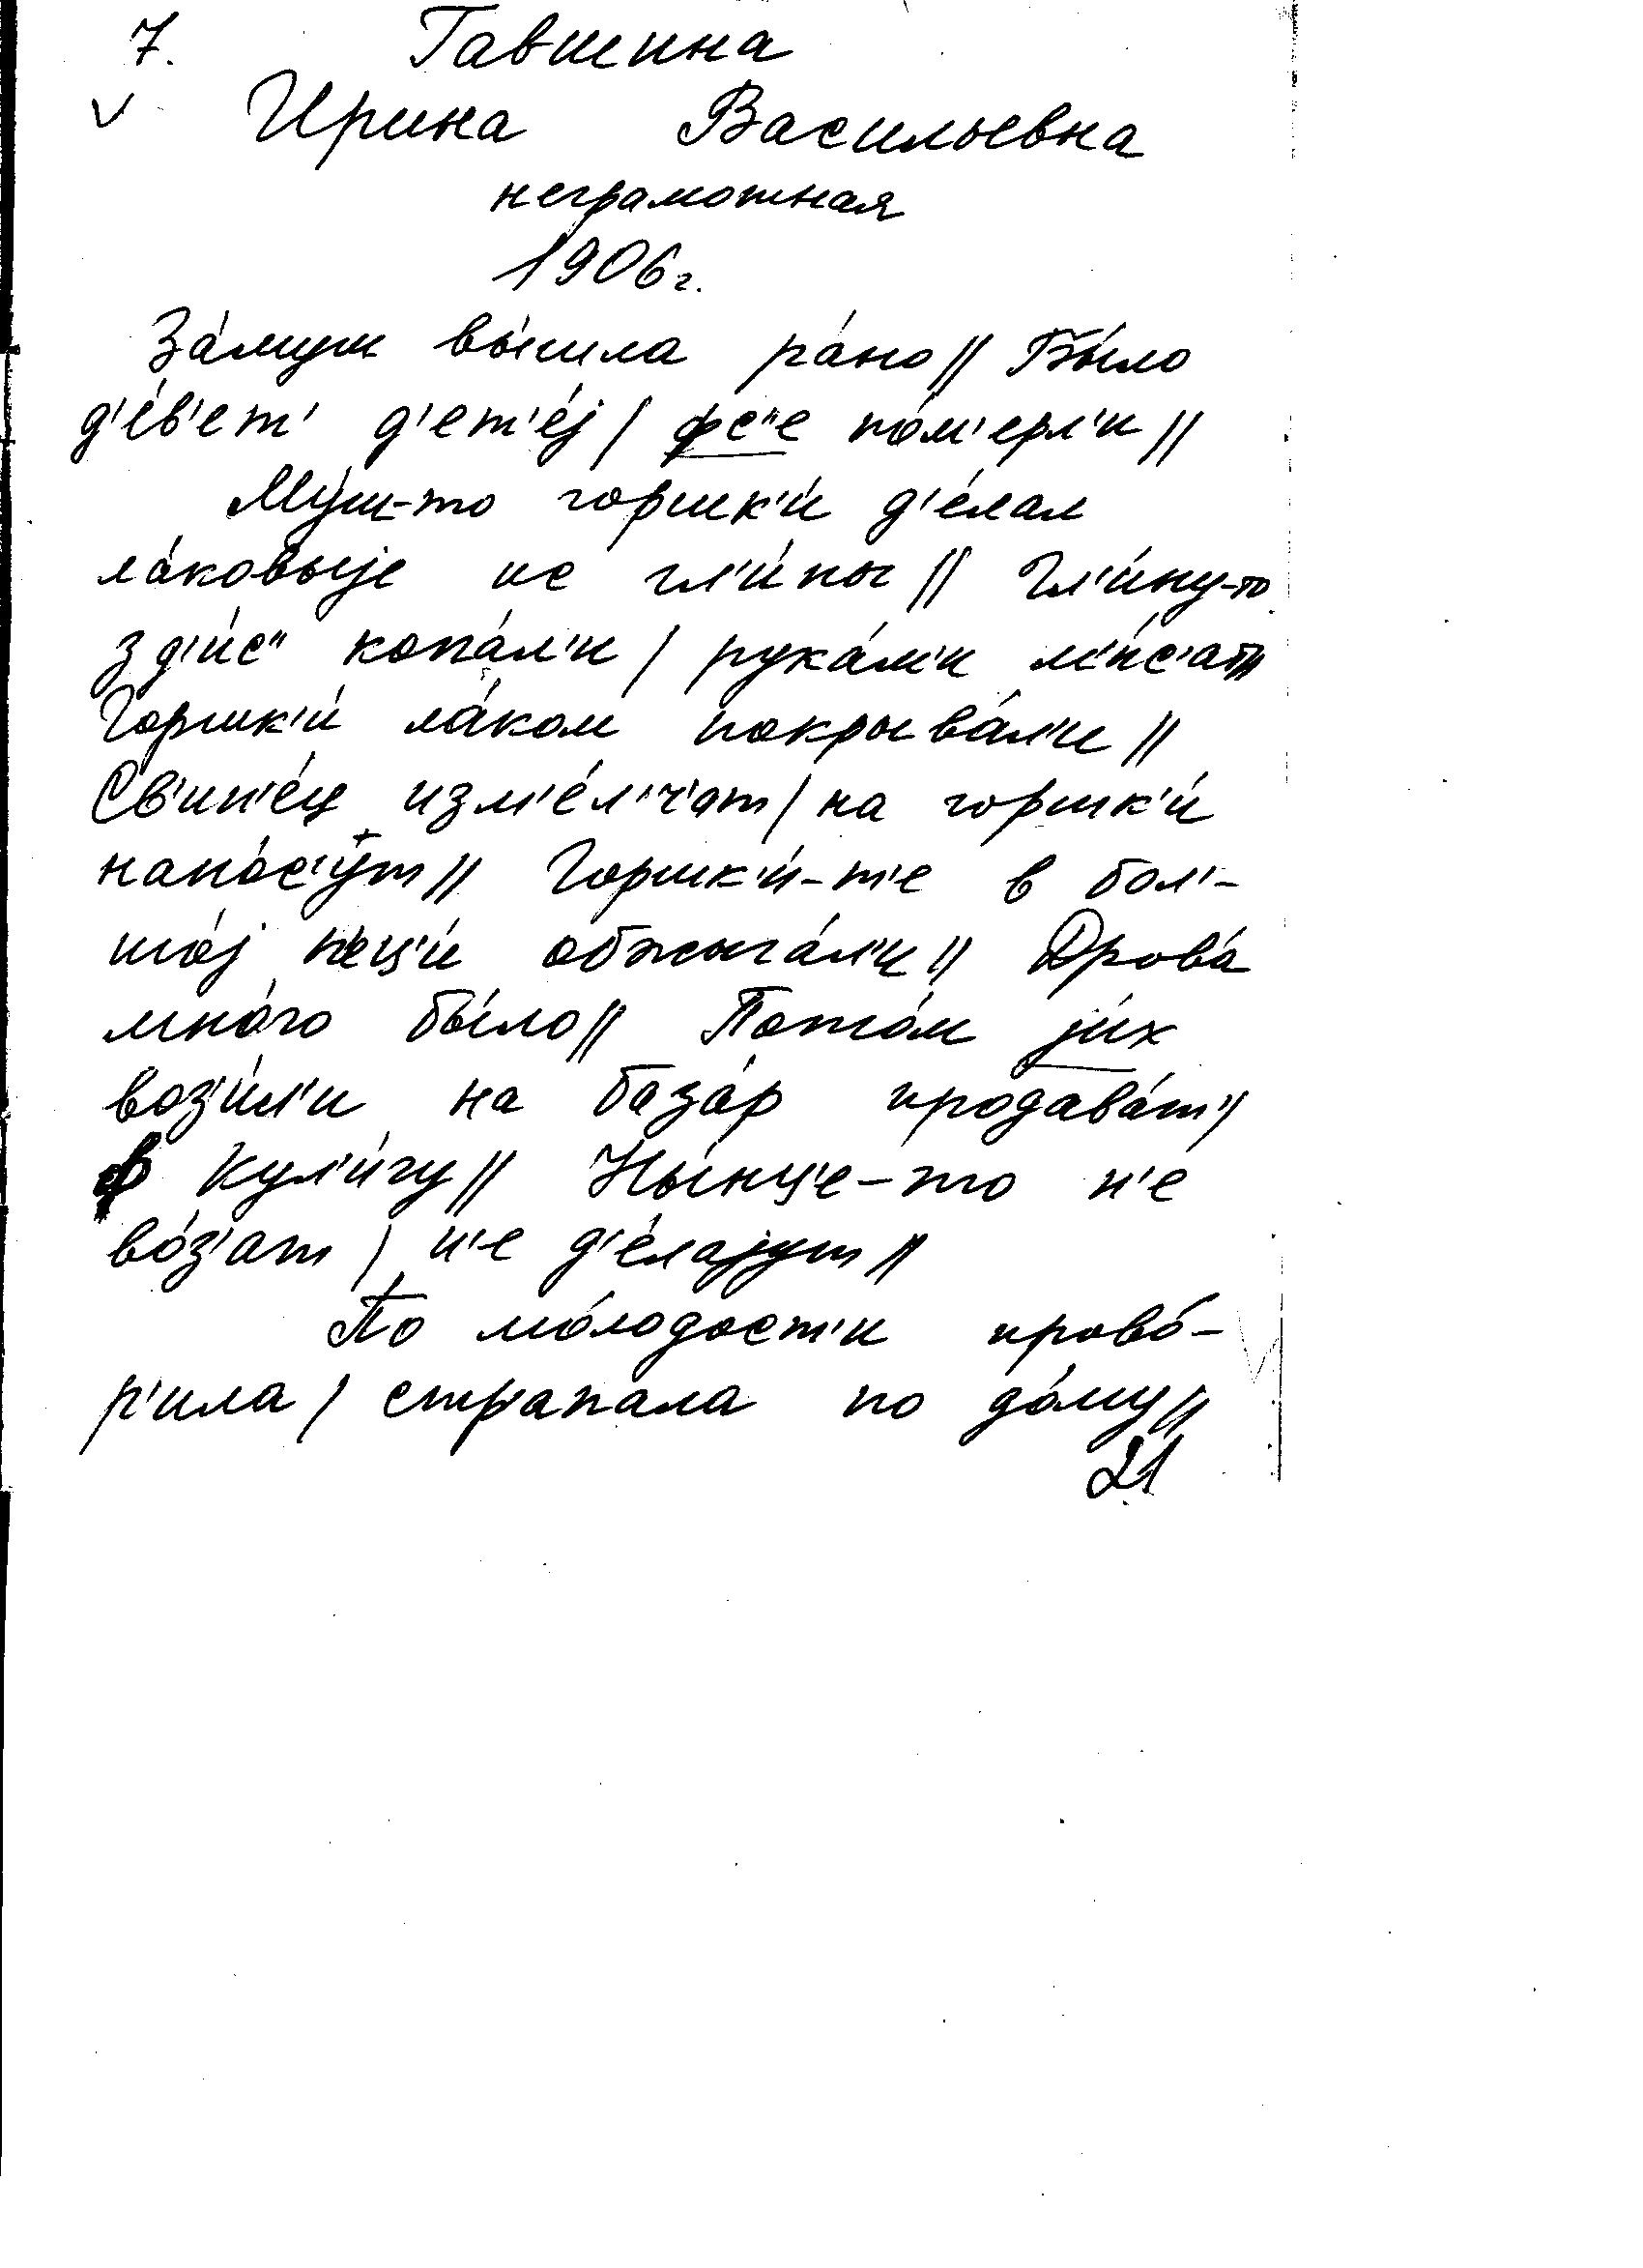 7. Гавшина
Ирина Васильевна
неграмотная
1906 г.
За́муш вы́шла ра́но // Бы́ло
д'е́в'ет' д'ет'е́j / фс"е по́м'ерл'и //
Му́ш-то горшк'и́ д'е́лал
ла́ковыjе ис гл'и́ны // Гл'и́ну-то
зд'и́с" копа́л'и / рука́м'и м'и́с'ат //
Горшк'и́ ла́ком покрыва́л'и //
Св'ин'е́ц изм'е́л'ч'ат / на горшк'и́
нано́с'ут // Горшк'и́-т'е в бол'-
шо́j п'ец'и́ обжыга́л'и // Дрова́
мно́го бы́ло // Пото́м jи́х
воз'и́л'и на база́р продава́т' /
в Кул'и́гу // Ны́нц'е-то н'е
во́з'ат / н'е д'е́лаjут //
По мо́лодост'и прово́-
р'ила / стр'апала по до́му //
21